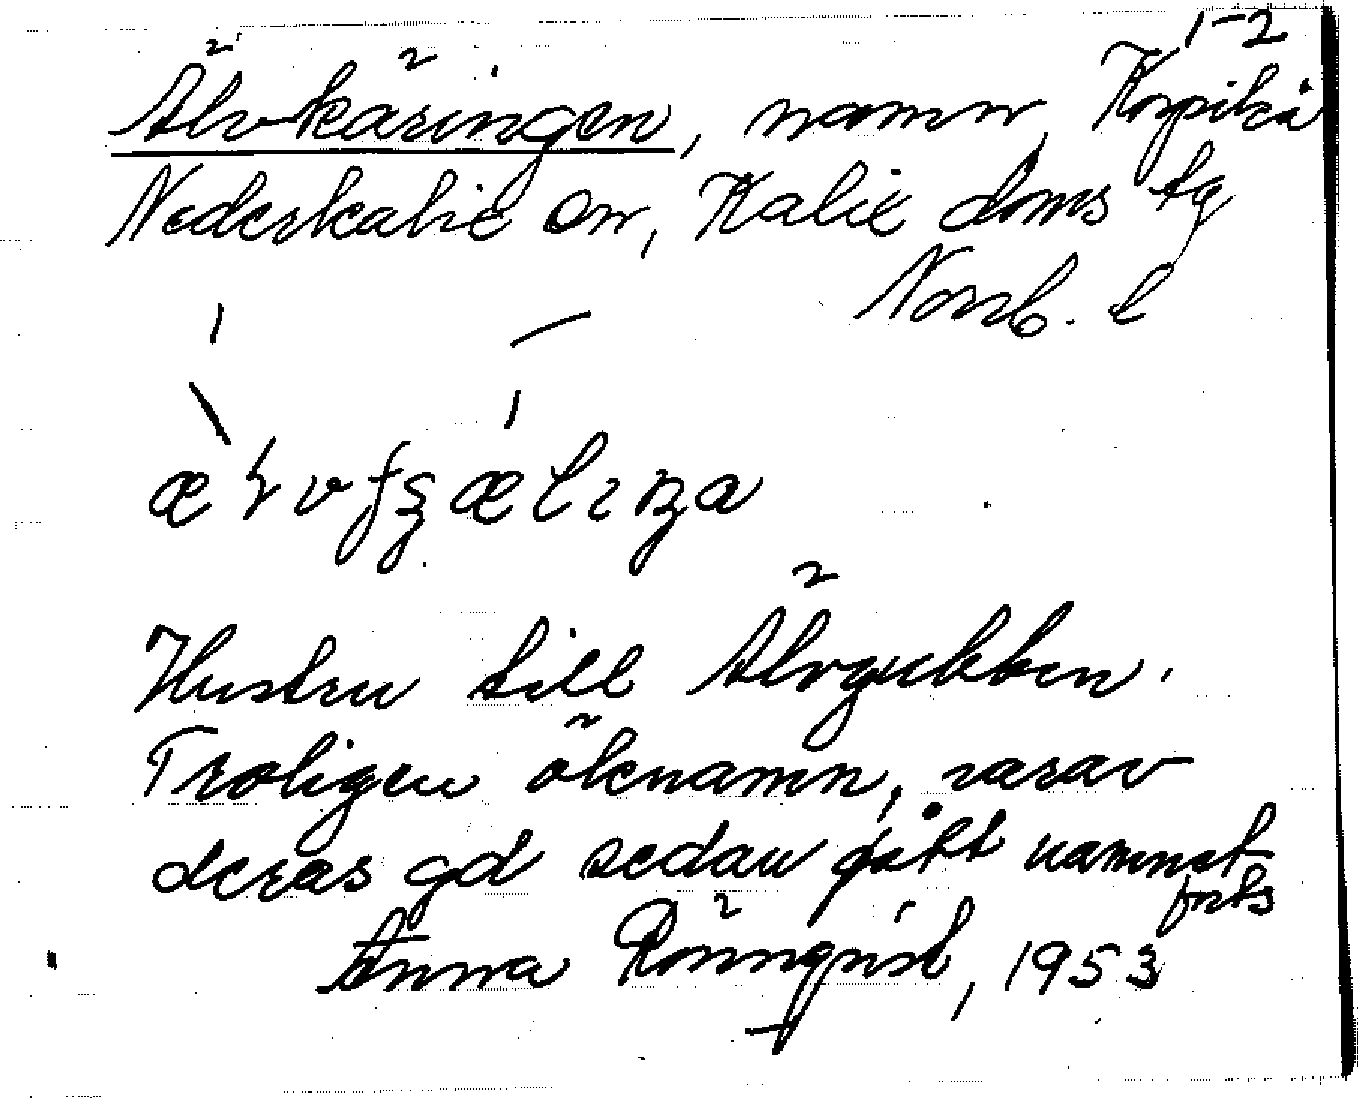 1-2
Älvkäringen, namn, Korpikå
Nederkalix sn, Kalix doms tg
Norrb. l
Hustru till Älvgubben.
Troligen öknamn, varav
deras gd sedan gått namnet
forts
Anna Rönnqvist, 1953